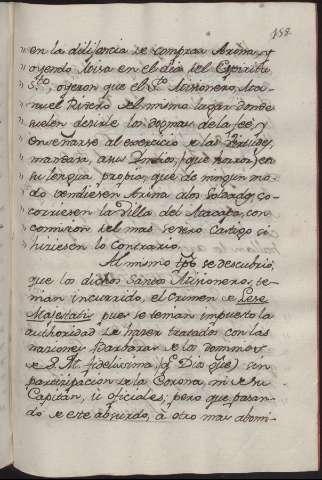 158.
" en la diligencia de comprar Arina, y
" oyendo Misa en el dia del Espiritu
" S.to, oyeron que el P.e Misionero, Ma-
" nuel Ribero del mismo lugar donde
" suelen decirle los dogmas de la feè, y
" enseñarse al exercicio de las Virtudes,
" mandara, a sus Indios, (que hazen) en
" su lengua propia, que de ningun mo-
" do vendiesen Arina a los Soldados, q
" corriesen la Villa del Macapa, con
" comision del mas severo Castigo si
" hiziesen lo contrario.
Al mismo tpõ se descubrio,
que los dichos Santos Misioneros, te-
nian incurrido, el Crimen de Lese
Majestatis pues se tenian impuesto la
authoridad de hazer tratados con las
naciones Barbaras de los dominios
de S. M. fidelissima, (q.e Dios g.ue) sin
participacion de la Corona, ni de su
Capitán, u oficiales; pero que pasan-
do de este absurdo, à otro mas abomi-